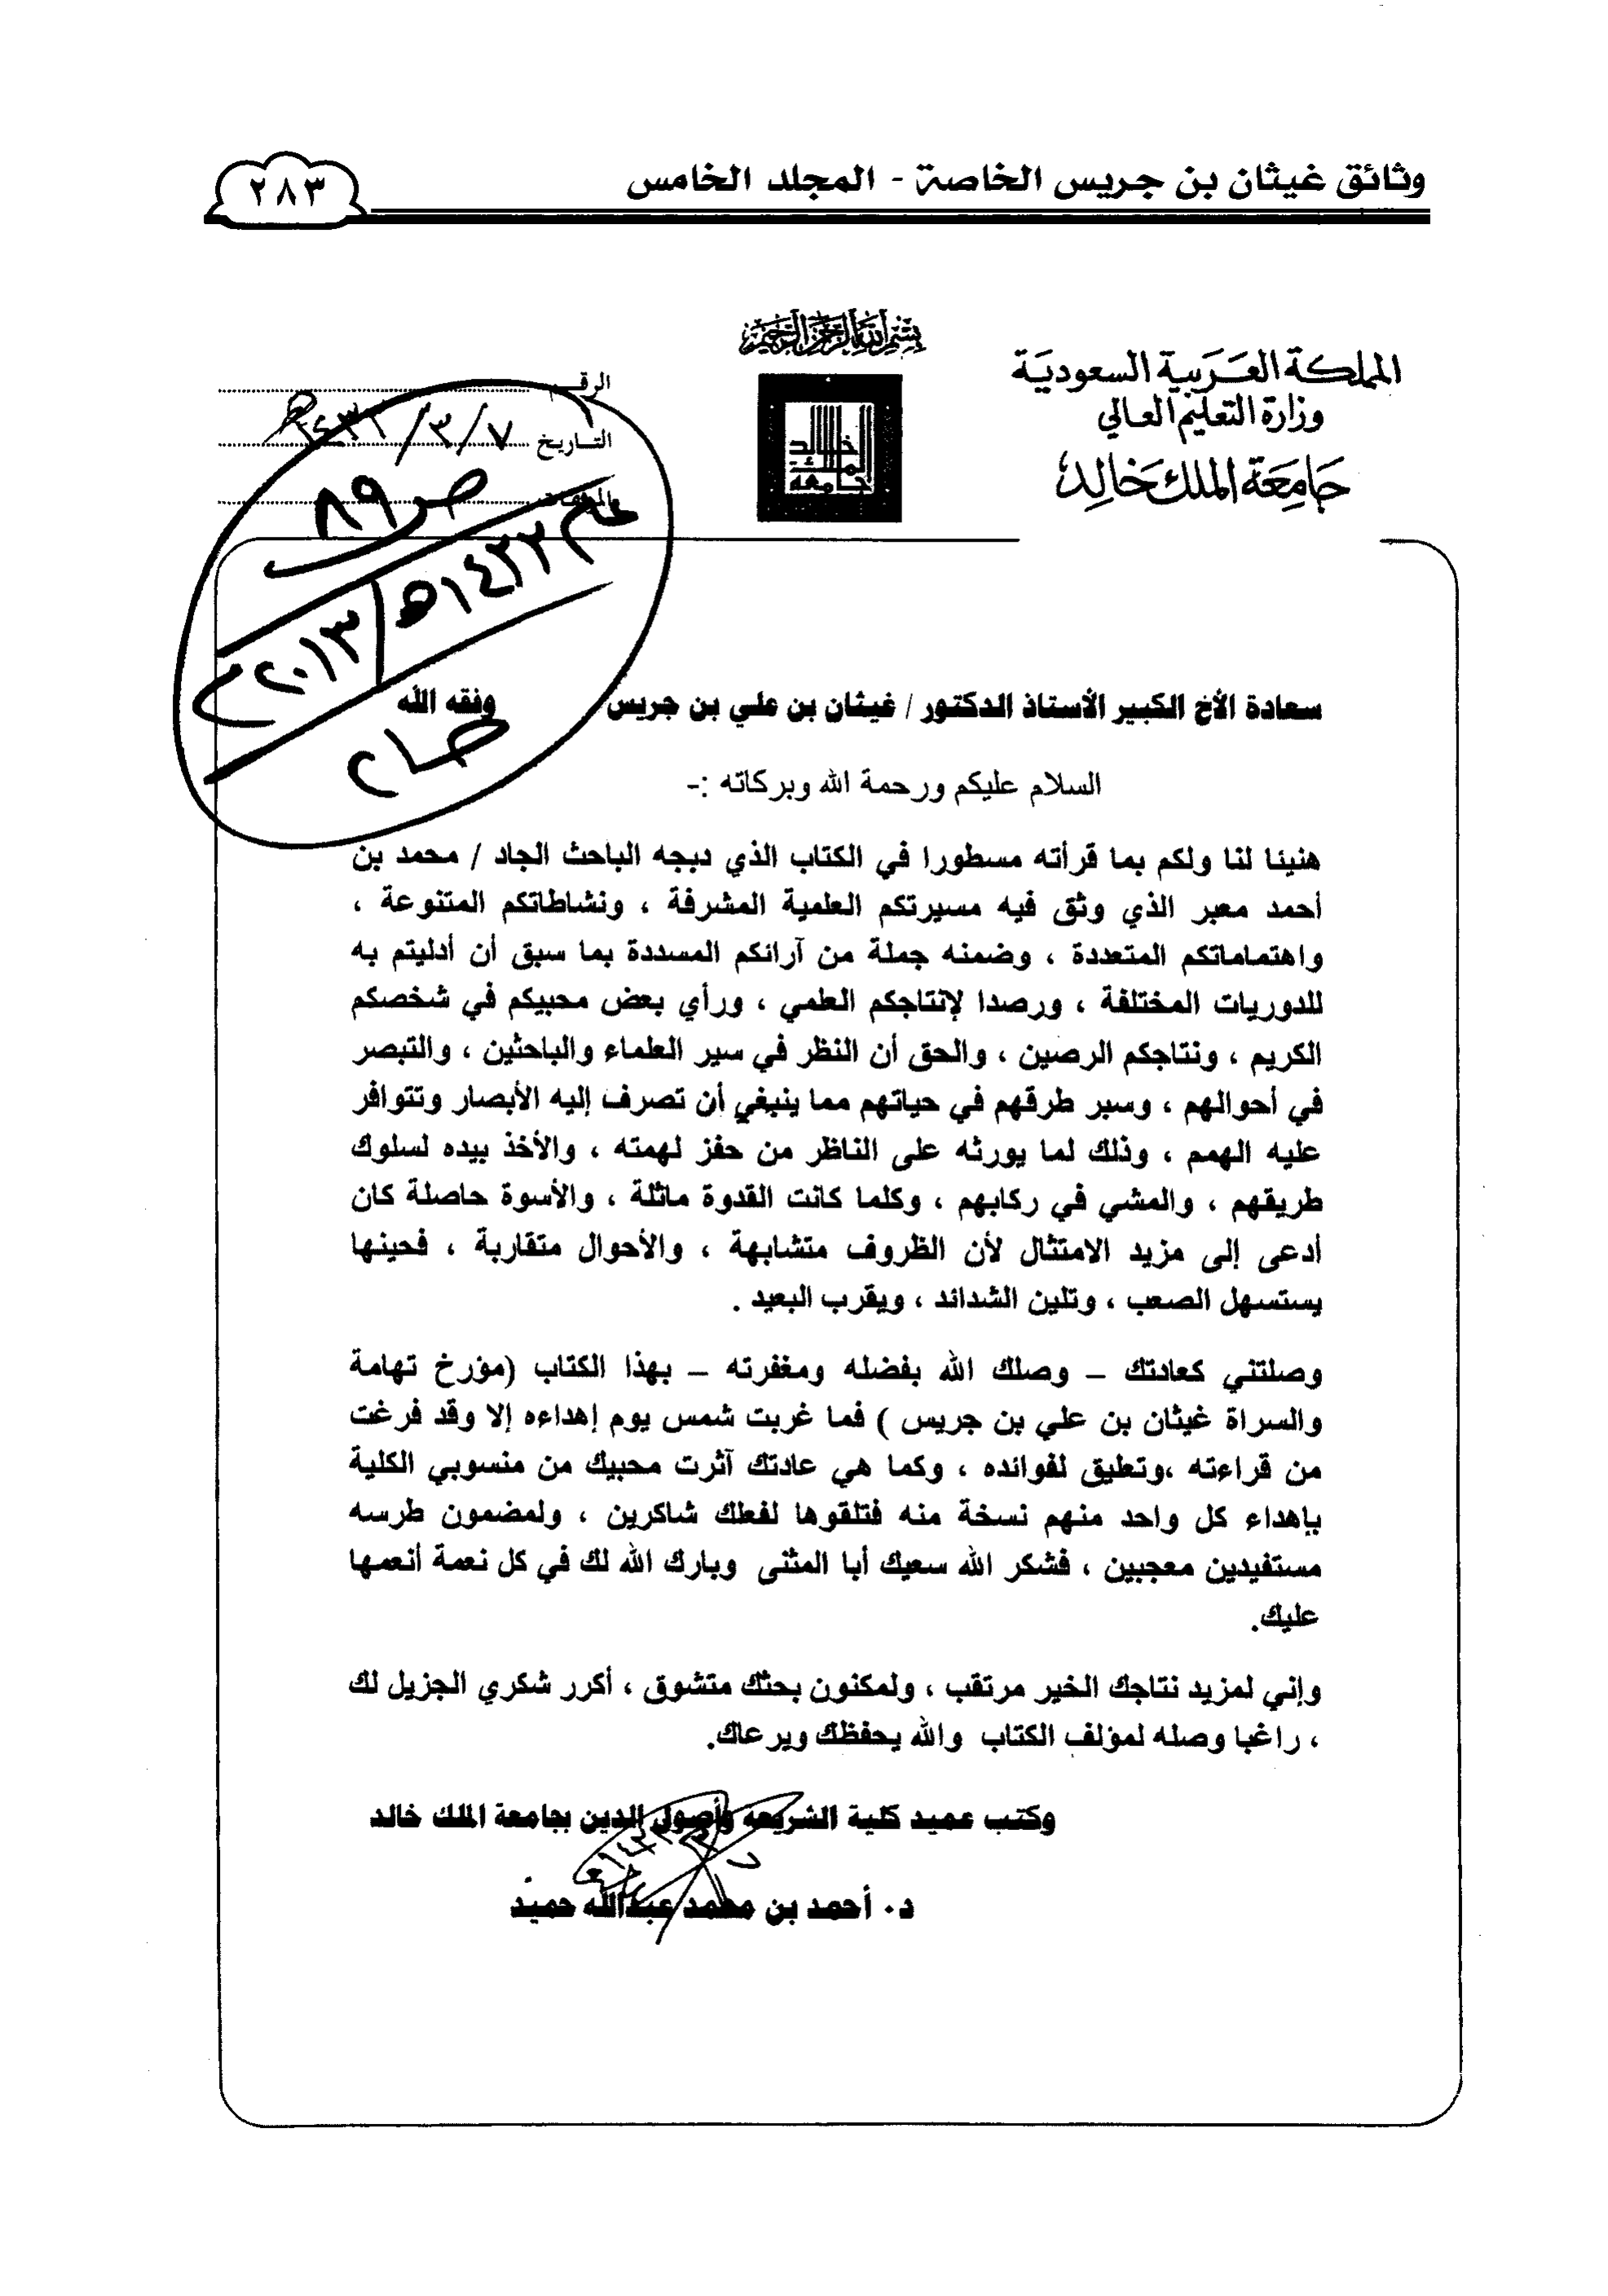 وثائق غيثان بن جريس الخاصة - المجلد الخامس
٢٨٣
بسم الله الرحمن الرحيم
المملكة العربية السعودية
وزارة التعليم العالي
جامعة الملك خالد
جامعة الملك خالد
الرقم
التاريخ ٧/٣/
ص ٨٩
عام ١٤٣٣هـ/٢٠١٣م
سعادة الأخ الكبير الأستاذ الدكتور / غيثان بن علي بن جريس وفقه الله
السلام عليكم ورحمة الله وبركاته :-
هنيئا لنا ولكم بما قرأته مسطورا في الكتاب الذي دبجه الباحث الجاد / محمد بن
أحمد معبر الذي وثق فيه مسيرتكم العلمية المشرفة ، ونشاطاتكم المتنوعة ،
واهتماماتكم المتعددة ، وضمنه جملة من آرائكم المسددة بما سبق أن أدليتم به
للدوريات المختلفة ، ورصدا لإنتاجكم العلمي ، ورأي بعض محبيكم في شخصكم
الكريم ، ونتاجكم الرصين ، والحق أن النظر في سير العلماء والباحثين ، والتبصر
في أحوالهم ، وسبر طرقهم في حياتهم مما ينبغي أن تصرف إليه الأبصار وتتوافر
عليه الهمم ، وذلك لما يورثه على الناظر من حفز لهمته ، والأخذ بيده لسلوك
طريقهم ، والمشي في ركابهم ، وكلما كانت القدوة ماثلة ، والأسوة حاصلة كان
أدعى إلى مزيد الامتثال لأن الظروف متشابهة ، والأحوال متقاربة ، فحينها
يستسهل الصعب ، وتلين الشدائد ، ويقرب البعيد .
وصلتني كعادتك – وصلك الله بفضله ومغفرته – بهذا الكتاب (مؤرخ تهامة
والسراة غيثان بن علي بن جريس ) فما غربت شمس يوم إهداءه إلا وقد فرغت
من قراءته ،وتعليق لفوائده ، وكما هي عادتك آثرت محبيك من منسوبي الكلية
بإهداء كل واحد منهم نسخة منه فتلقوها لفعلك شاكرين ، ولمضمون طرسه
مستفيدين معجبين ، فشكر الله سعيك أبا المثنى وبارك الله لك في كل نعمة أنعمها
عليك.
وإني لمزيد نتاجك الخير مرتقب ، ولمكنون بحثك متشوق ، أكرر شكري الجزيل لك
، راغبا وصله لمؤلف الكتاب والله يحفظك ويرعاك.
وكتب عميد كلية الشريعة وأصول الدين بجامعة الملك خالد
د. أحمد بن محمد عبدالله حميد